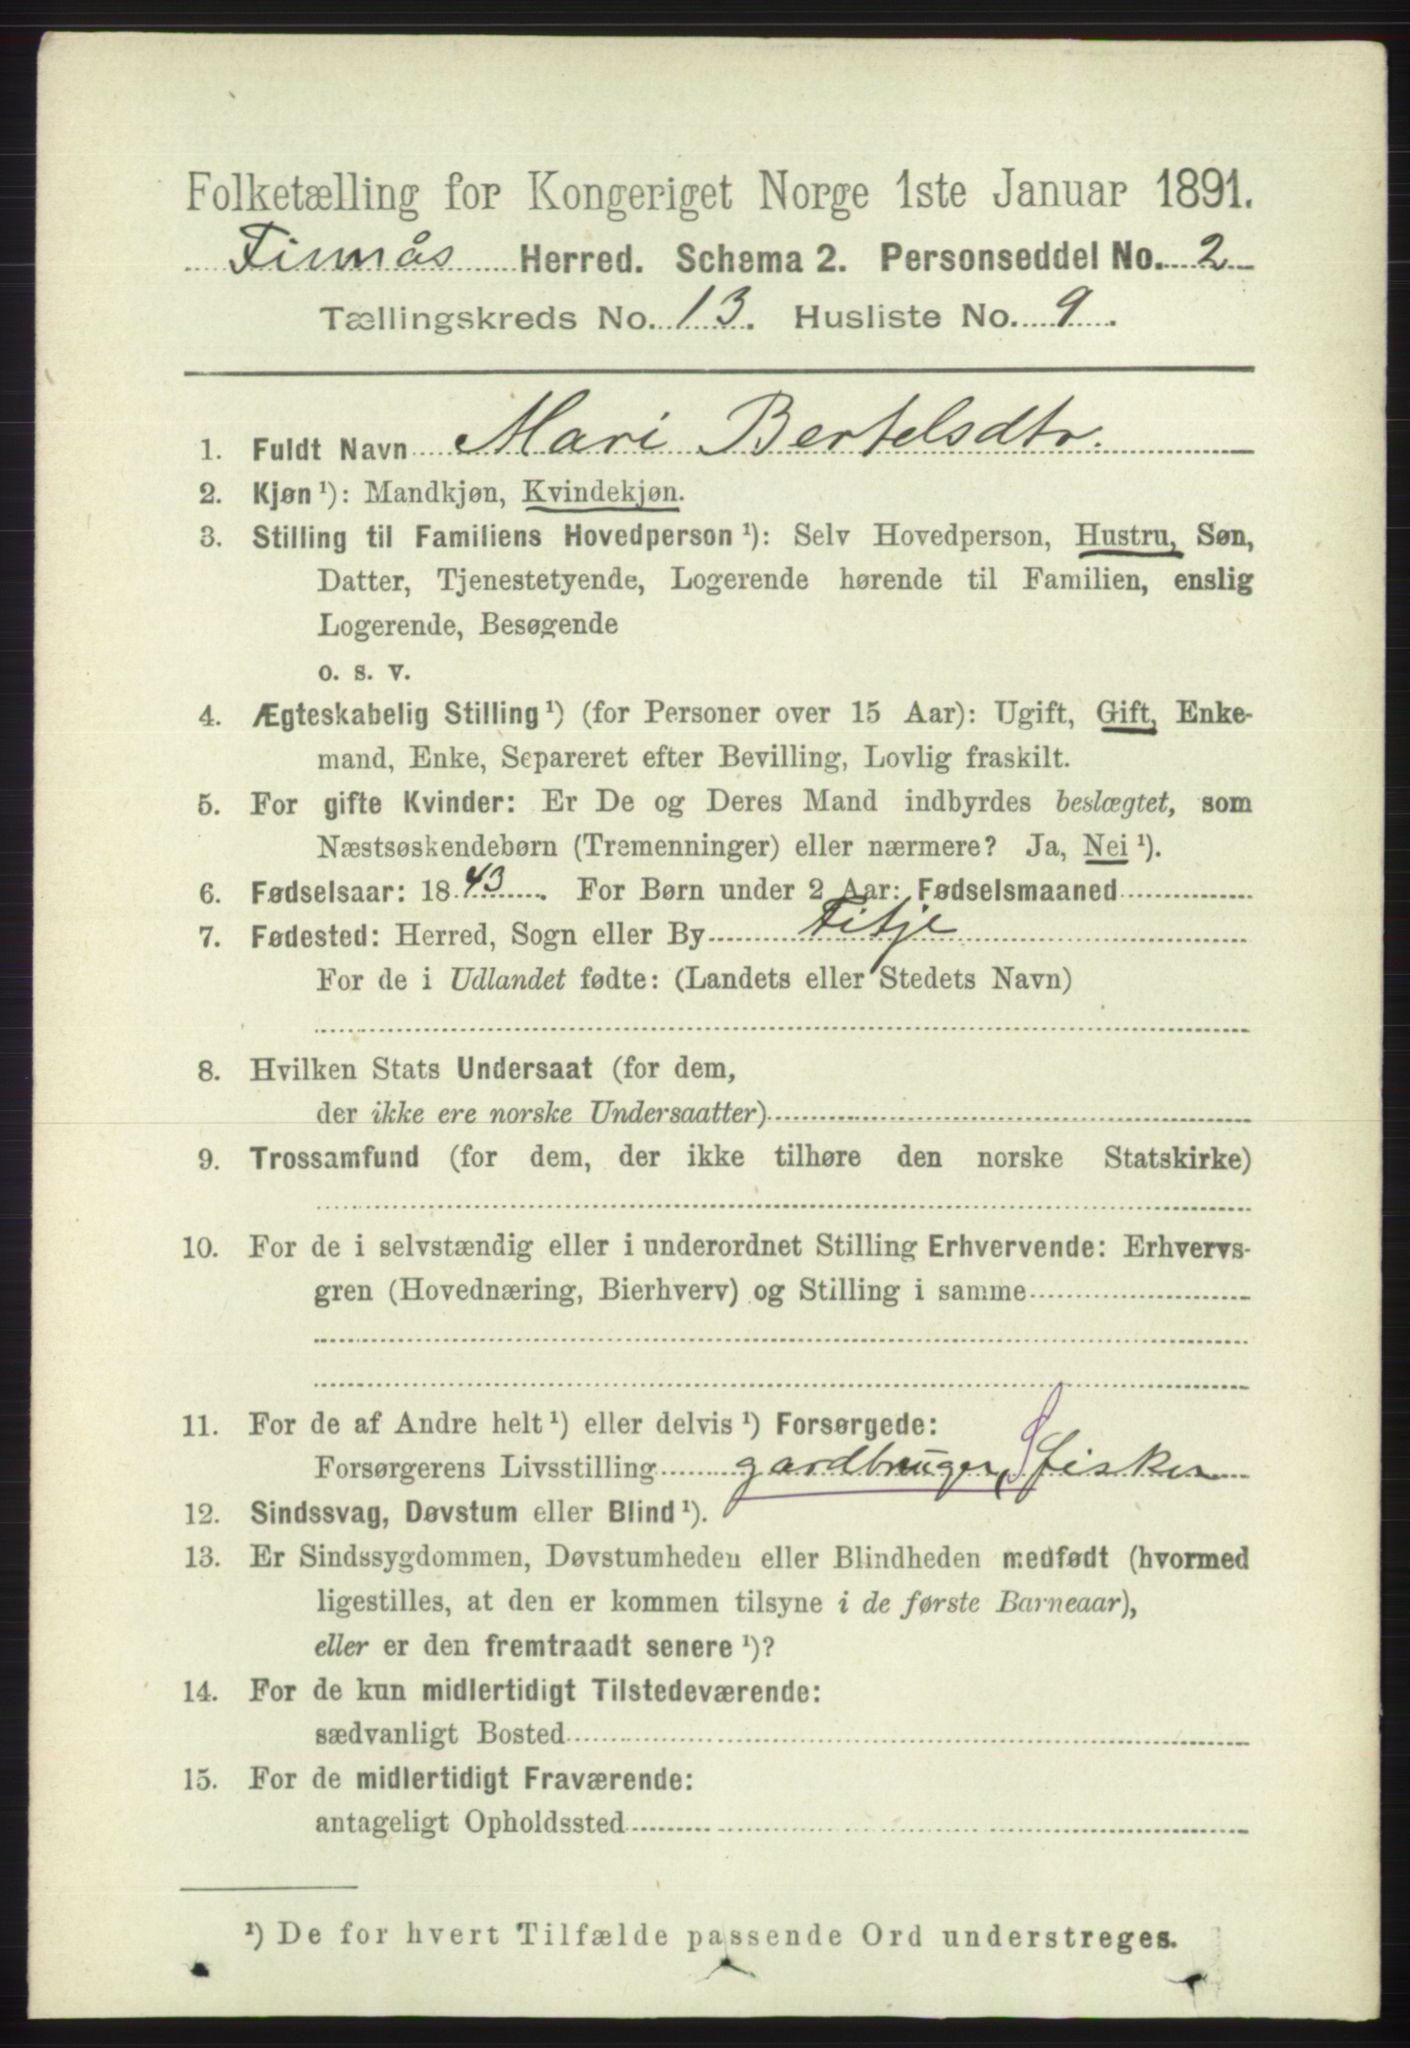 Folketælling for Kongeriget Norge 1ste Januar 1891.
Finnås Herred. Schema 2. Personseddel No. 2
Tællingskreds No. 13. Husliste No. 9.
1. Fuldt Navn Mari Bertelsdtr.
2. Kjøn ¹): Mandkjøn, Kvindekjøn.
3. Stilling til Familiens Hovedperson ¹): Selv Hovedperson, Hustru, Søn,
Datter, Tjenestetyende, Logerende hørende til Familien, enslig
Logerende, Besøgende
o. s. v.
4. Ægteskabelig Stilling ¹) (for Personer over 15 Aar): Ugift, Gift, Enke-
mand, Enke, Separeret efter Bevilling, Lovlig fraskilt.
5. For gifte Kvinder: Er De og Deres Mand indbyrdes beslægtet, som
Næstsøskendebørn (Tremenninger) eller nærmere? Ja, Nei ¹).
6. Fødselsaar: 1843. For Børn under 2 Aar: Fødselsmaaned
7. Fødested: Herred, Sogn eller By Fitje
For de i Udlandet fødte: (Landets eller Stedets Navn)
8. Hvilken Stats Undersaat (for dem,
der ikke ere norske Undersaatter)
9. Trossamfund (for dem, der ikke tilhøre den norske Statskirke)
10. For de i selvstændig eller i underordnet Stilling Erhvervende: Erhvervs-
gren (Hovednæring, Bierhverv) og Stilling i samme
11. For de af Andre helt ¹) eller delvis ¹) Forsørgede:
Forsørgerens Livsstilling gardbruger, S fisker
12. Sindssvag, Døvstum eller Blind ¹).
13. Er Sindssygdommen, Døvstumheden eller Blindheden medfødt (hvormed
ligestilles, at den er kommen tilsyne i de første Barneaar),
eller er den fremtraadt senere ¹)?
14. For de kun midlertidigt Tilstedeværende:
sædvanligt Bosted
15. For de midlertidigt Fraværende:
antageligt Opholdssted
¹) De for hvert Tilfælde passende Ord understreges.